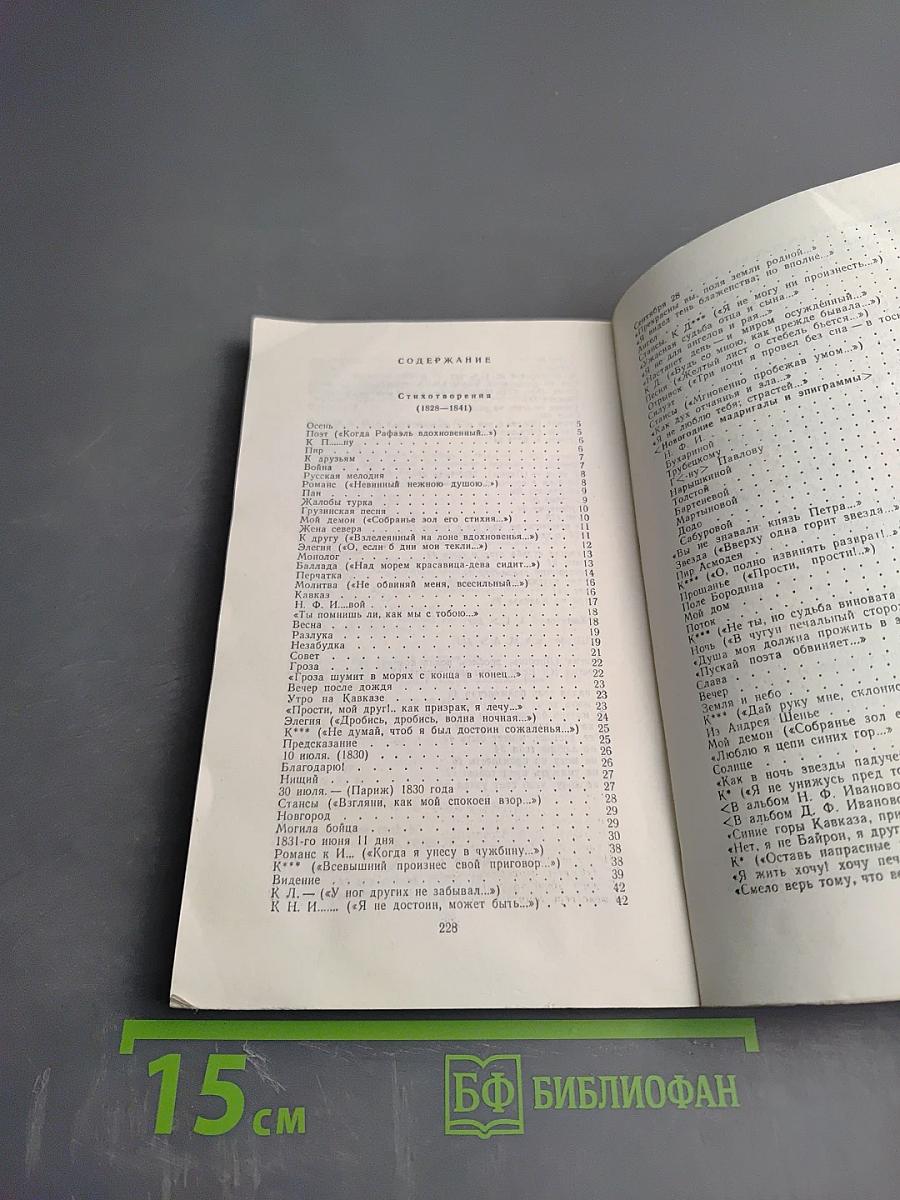 СОДЕРЖАНИЕ
Стихотворения
(1828—1841)
Осень . . . 5
Поэт («Когда Рафаэль вдохновенный...») . . . 5
К П......ну . . . 6
Пир . . . 6
К друзьям . . . 7
Война . . . 7
Русская мелодия . . . 8
Романс («Невинный нежною душою...») . . . 8
Пан . . . 9
Жалобы турка . . . 9
Грузинская песня . . . 10
Мой демон («Собранье зол его стихия...») . . . 10
Жена севера . . . 11
К другу («Взлелеянный на лоне вдохновенья...») . . . 11
Элегия («О, если б дни мои текли...») . . . 12
Монолог . . . 13
Баллада («Над морем красавица-дева сидит...») . . . 13
Перчатка . . . 14
Молитва («Не обвиняй меня, всесильный...») . . . 16
Кавказ . . . 16
Н. Ф. И....вой . . . 17
«Ты помнишь ли, как мы с тобою...» . . . 18
Весна . . . 18
Разлука . . . 19
Незабудка . . . 19
Совет . . . 21
Гроза . . . 22
«Гроза шумит в морях с конца в конец...» . . . 22
Вечер после дождя . . . 23
Утро на Кавказе . . . 23
«Прости, мой друг!.. как призрак, я лечу...» . . . 23
Элегия («Дробись, дробись, волна ночная...») . . . 24
К*** («Не думай, чтоб я был достоин сожаленья...») 25
Предсказание . . . 25
10 июля. (1830) . . . 26
Благодарю! . . . 26
Нищий . . . 27
30 июля. — (Париж) 1830 года . . . 27
Стансы («Взгляни, как мой спокоен взор...») . . . 28
Новгород . . . 29
Могила бойца . . . 29
1831-го июня 11 дня . . . 30
Романс к И... («Когда я унесу в чужбину...») . . . 38
К*** («Всевышний произнес свой приговор...») . . . 38
Видение . . . 39
К Л. — («У ног других не забывал...») . . . 42
К Н. И....... («Я не достоин, может быть...») . . . . 42
228
Сентября 28
«Прекрасны вы, поля земли родной...»
«Я видел тень блаженства; но вполне...»
Ангел
Стансы. К Д*** («Я не могу ни произнесть...»)
«Ужасная судьба отца и сына...»
«Я не для ангелов и рая...»
«Настанет день — и миром осуждённый...»
К Д. («Будь со мною, как прежде бывала...»)
Песня («Желтый лист о стебель бьется...»)
Отрывок («Три ночи я провел без сна — в тоск
Силуэт
Стансы («Мгновенно пробежав умом...»)
«Как дух отчаянья и зла...»
«Я не люблю тебя; страстей...»
<Новогодние мадригалы и эпиграммы>
Н. Ф. И.
Бухариной
Трубецкому
Г<-ну> Павлову
Нарышкиной
Толстой
Бартеневой
Мартыновой
Додо
Сабуровой
«Вы не знавали князь Петра...»
Звезда («Вверху одна горит звезда...»
Пир Асмодея
К*** («О, полно извинять разврат!..»
Прощанье («Прости, прости!..»)
Поле Бородина
Мой дом
Поток
К*** («Не ты, но судьба виновата
Ночь («В чугун печальный сторож
«Душа моя должна прожить в з
«Пускай поэта обвиняет...»
Слава
Вечер
Земля и небо
К*** («Дай руку мне, склонис
Из Андрея Шенье
Мой демон («Собранье зол е
«Люблю я цепи синих гор...»
Солнце
«Как в ночь звезды падуче
К* («Я не унижусь пред то
<В альбом Н. Ф. Ивановой
<В альбом Д. Ф. Ивановой
«Синие горы Кавказа, при
«Нет, я не Байрон, я друг
К* («Оставь напрасные
«Я жить хочу! хочу печ
«Смело верь тому, что ве
15 см
БФ БИБЛИОФАН